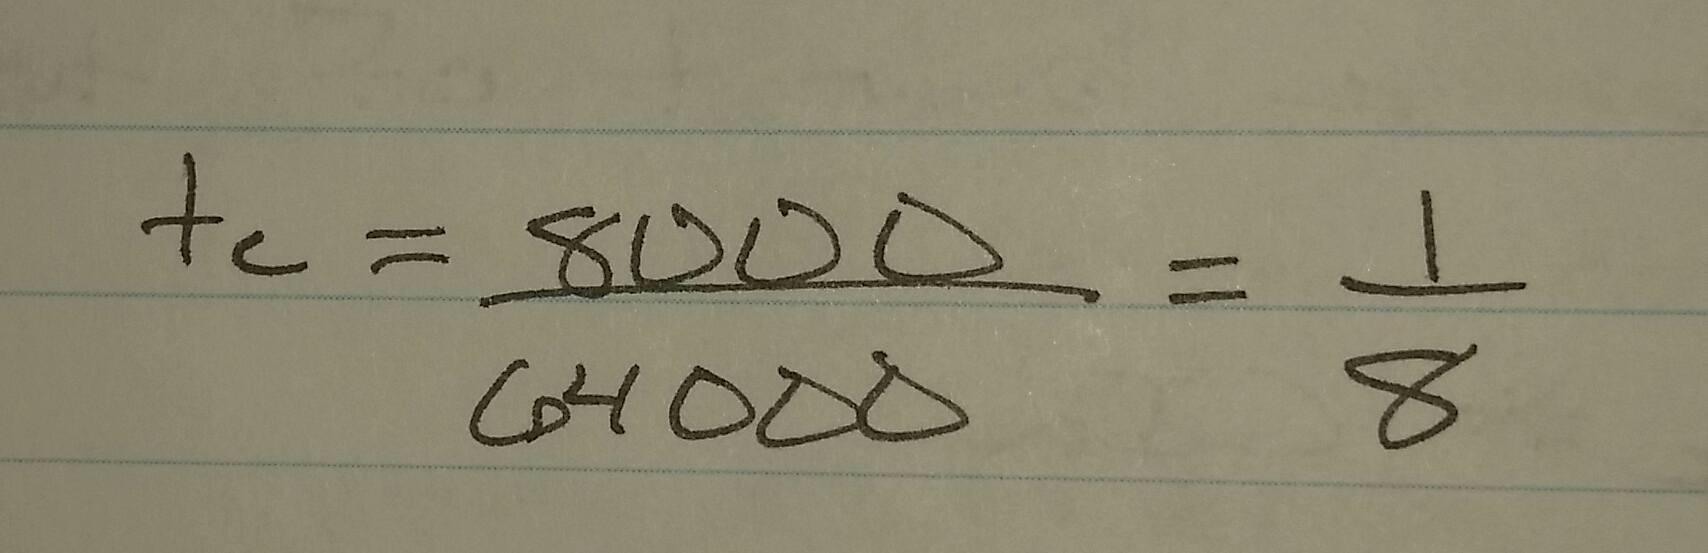 tc = 8000/64000 = 1/8